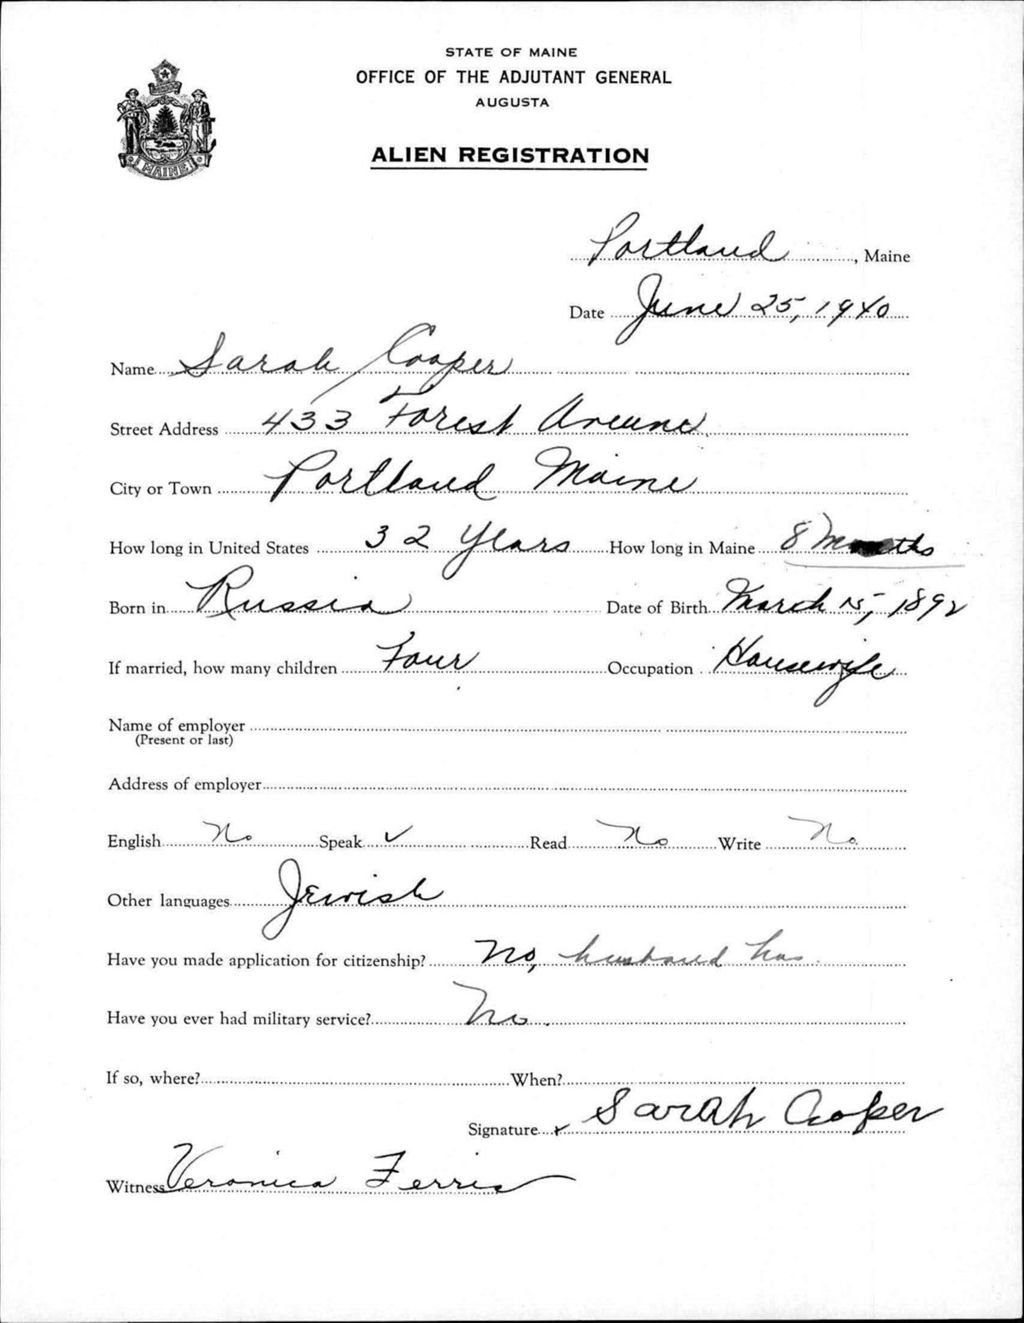 STATE OF MAINE
OFFICE OF THE ADJUTANT GENERAL
AUGUSTA
ALIEN REGISTRATION
MAINE
Portland, Maine
Date June 25, 1940
Name Sarah Cooper
Street Address 433 Forest Aveune
City or Town Portland Maine
How long in United States 32 Years How long in Maine 8 Months
Born in Russia Date of Birth March 15, 1892
If married, how many children Four Occupation Housewife
Name of employer
(Present or last)
Address of employer
English No Speak ✓ Read No Write No
Other languages Jewish
Have you made application for citizenship? No, husband has.
Have you ever had military service? No.
If so, where? When?
Signature x Sarah Cooper
Witness Veronica Ferris